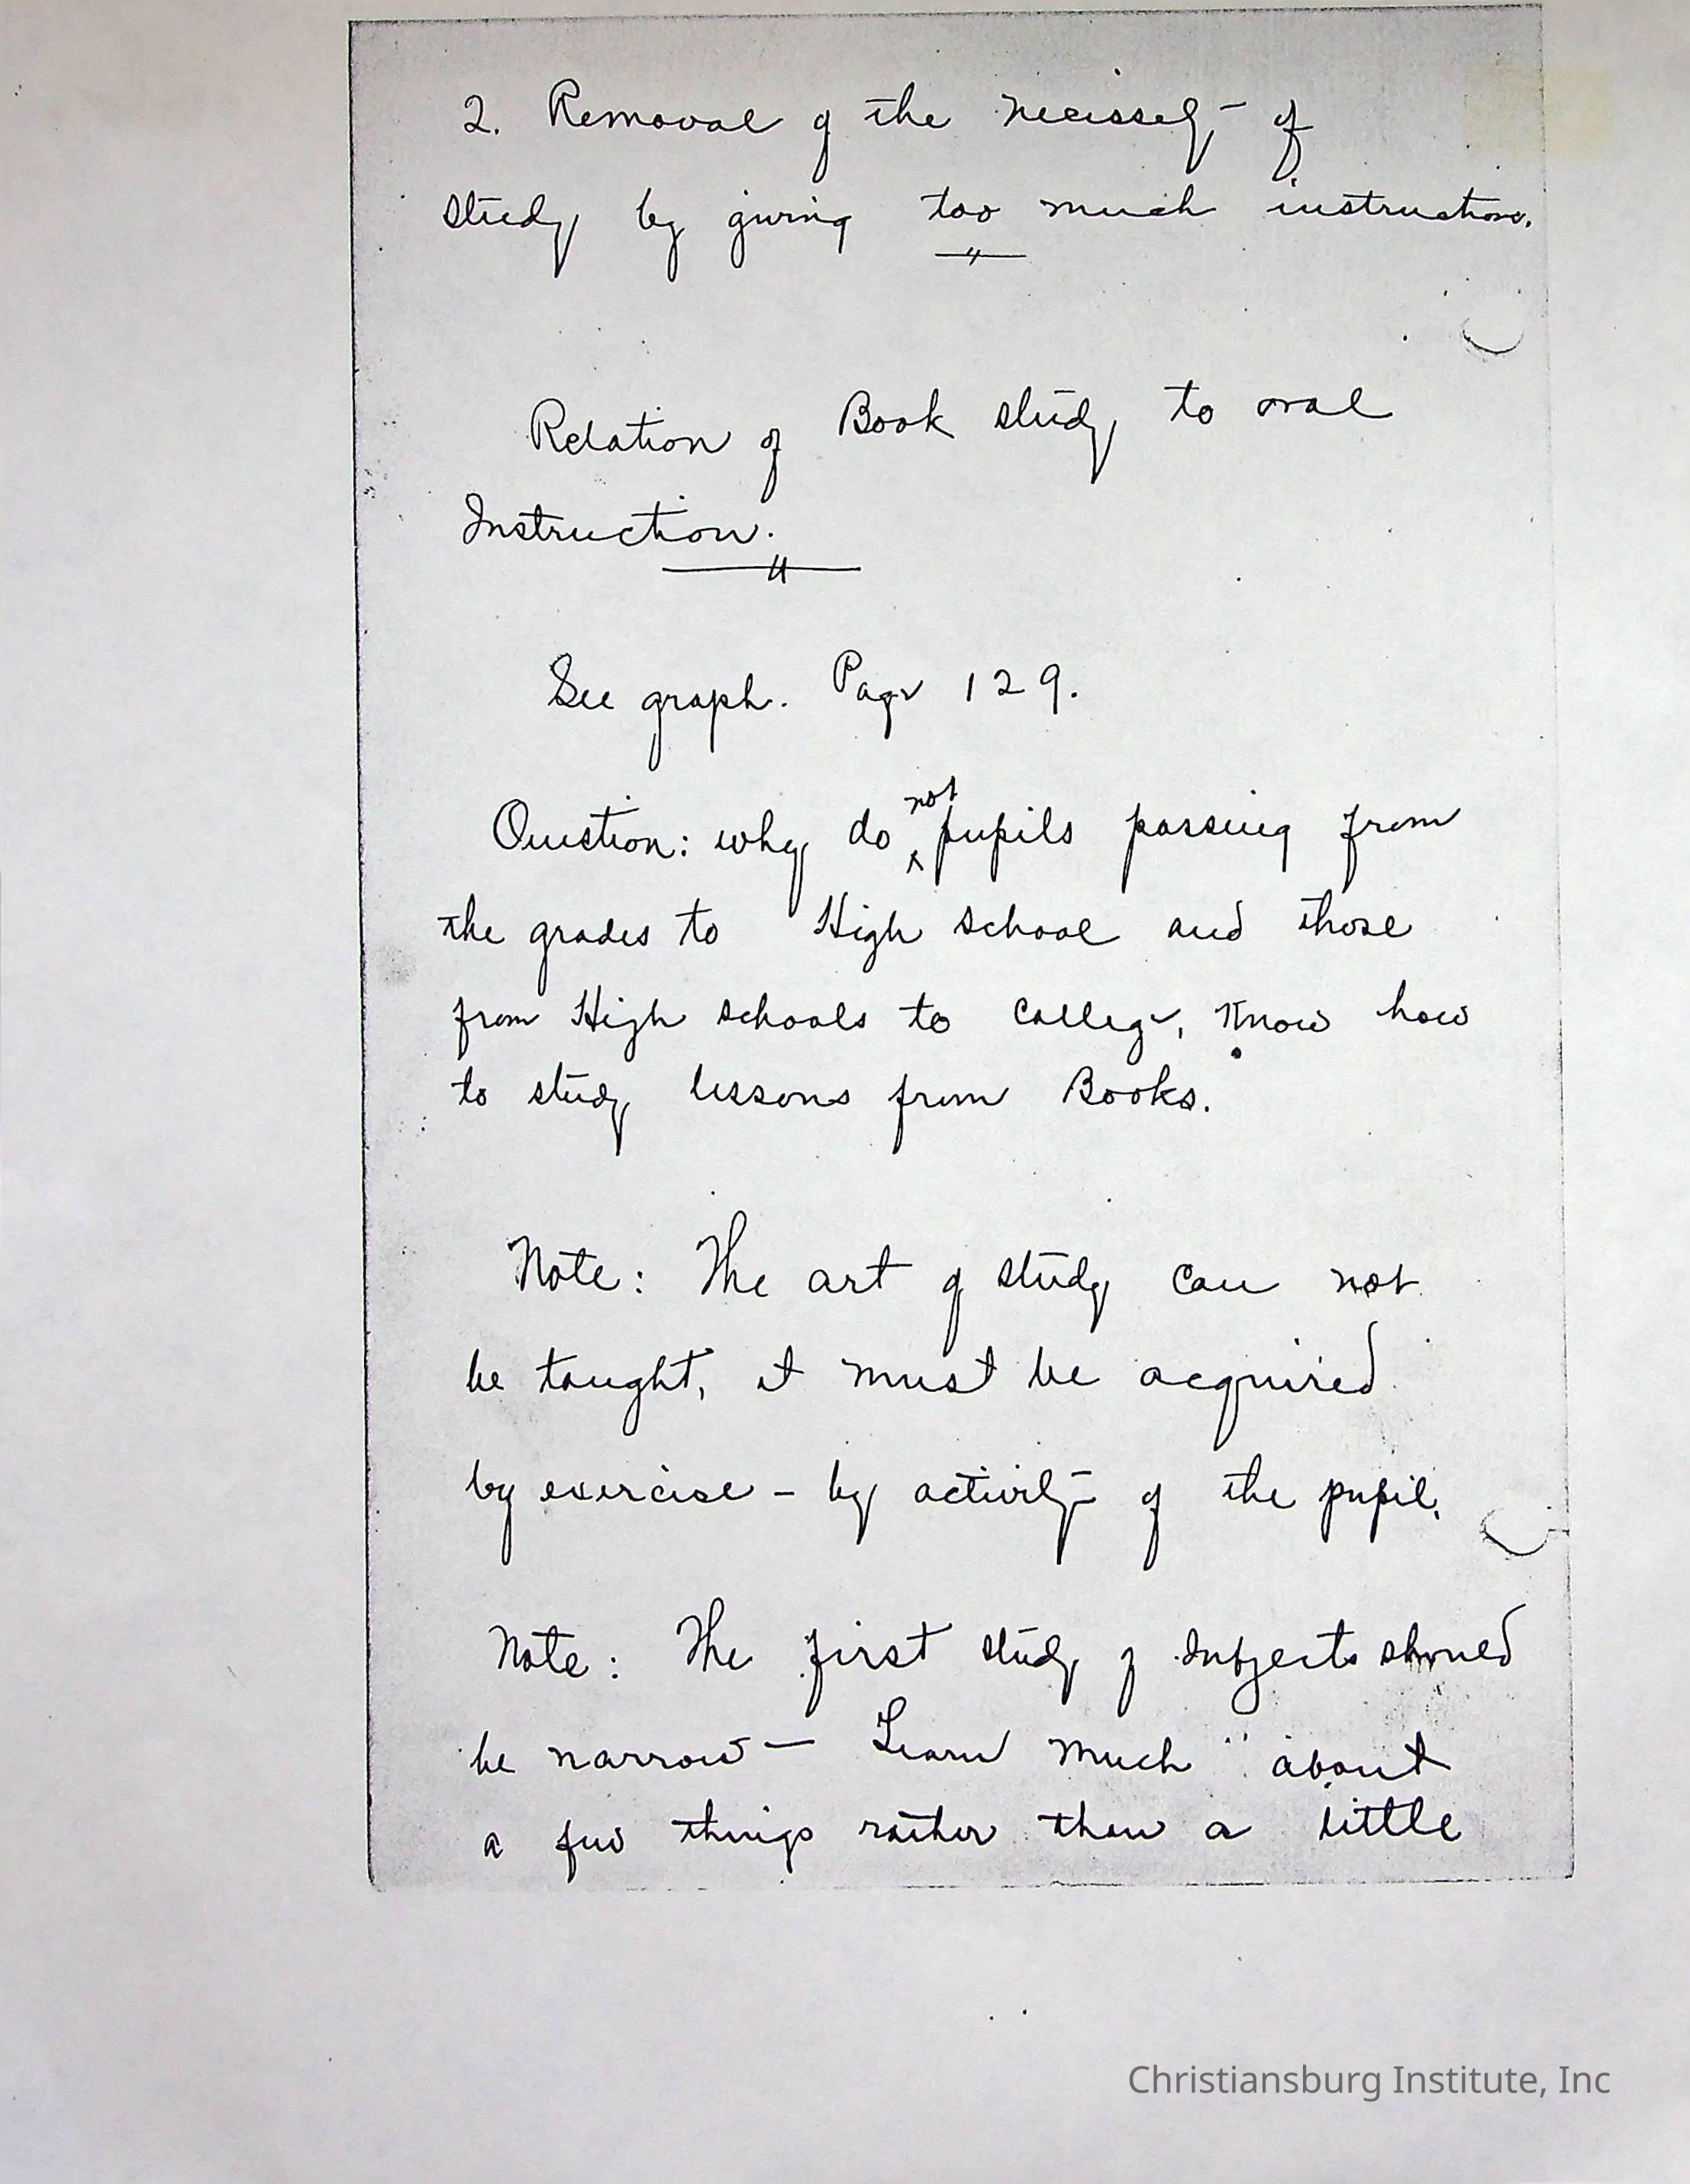 2. Removal of the necissety of
study by giving too much instructions.
Relation of Book study to oral
Instruction.
See graph. Page 129.
Question: why do not pupils passing from
the grades to High School and those
from High Schools to College, Know how
to study lessons from Books.
Note: The art of study can not
be taught, it must be acquired
by exercise - by activity of the pupil.
Note: The first study of subjects should
be narrow — Learn much about
a few things rather than a little
Christiansburg Institute, Inc